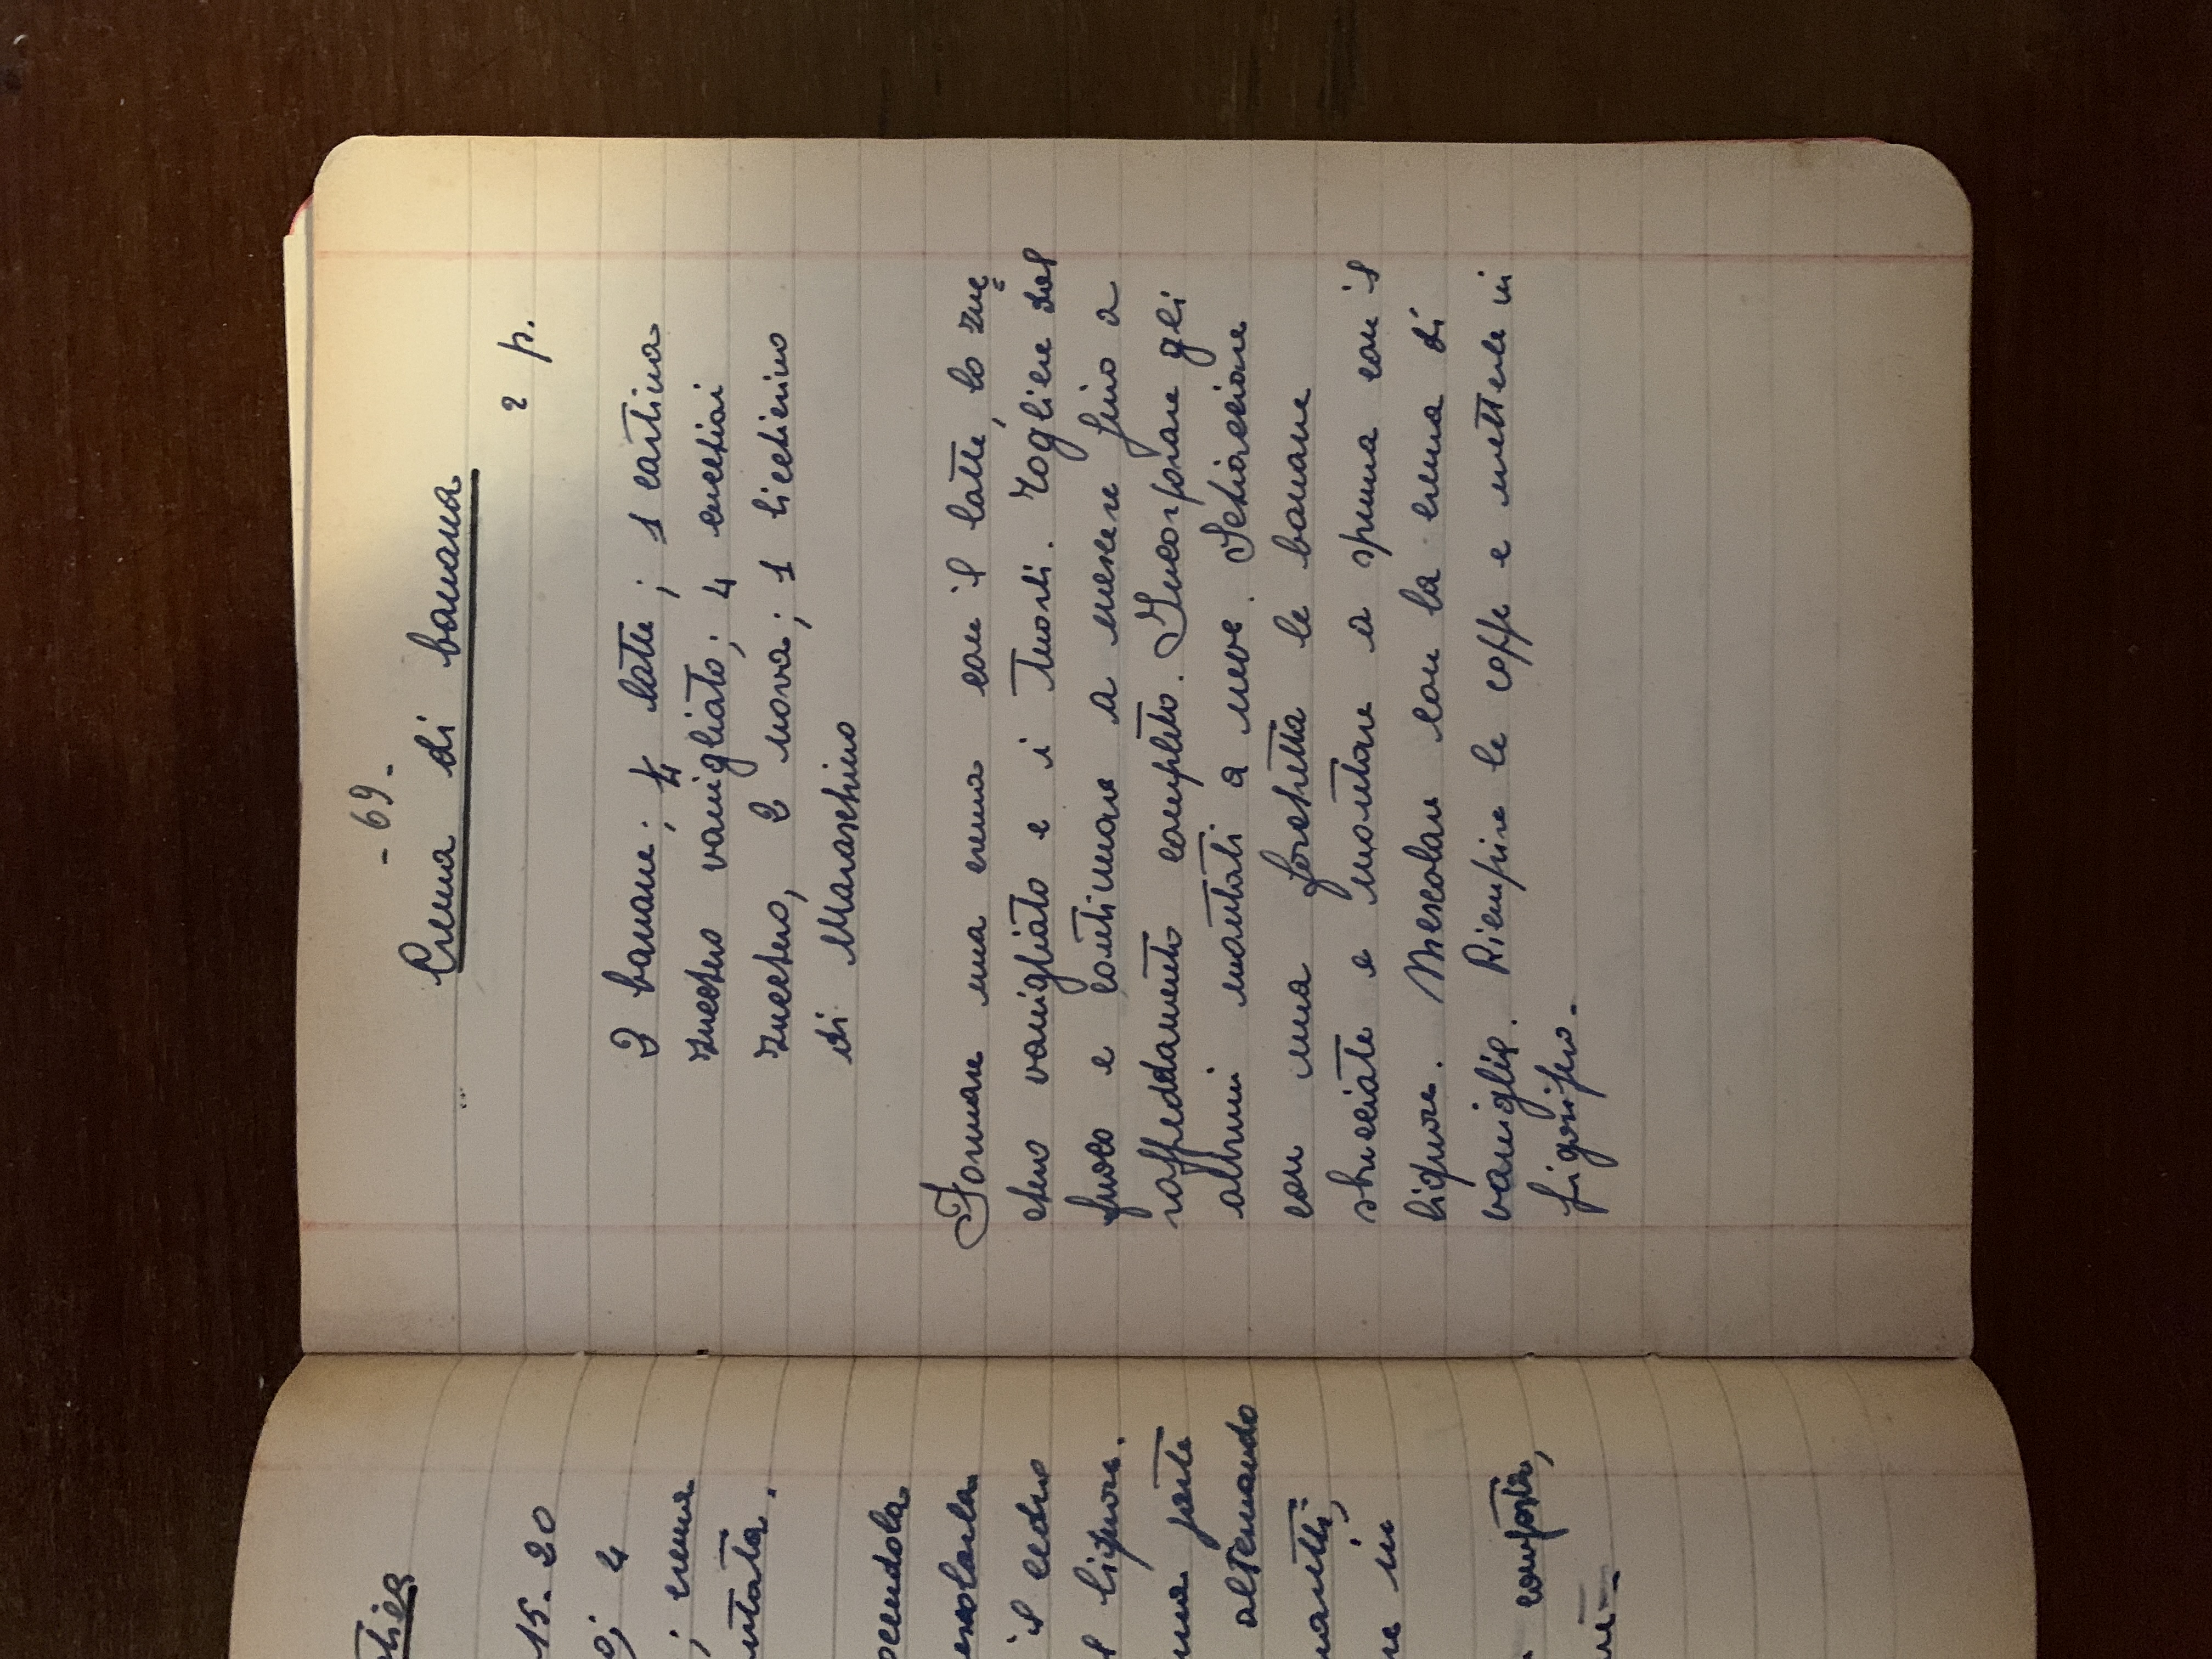 15. 20
4
; crema
il cedro
l liquore.
parte
alternando
in
composta,
- 69 -
Crema di banana
2 p.
2 banane; ¼ latte; 1 cartina
zucchero vanigliato; 4 cucchiai
zucchero, 2 uova; 1 bicchierino
di Maraschino
Formare una crema con il latte, lo zuc=
chero vanigliato e i tuorli. Togliere dal
fuoco e continuare a mescere fino a
raffreddamento completo. Incorporare gli
albumi montati a neve. Schiacciare
con una forchetta le banane
sbucciate e montare a spuma con il
liquore. Mescolare con la crema di
vaniglia. Riempire le coppe e metterle in
frigorifero.